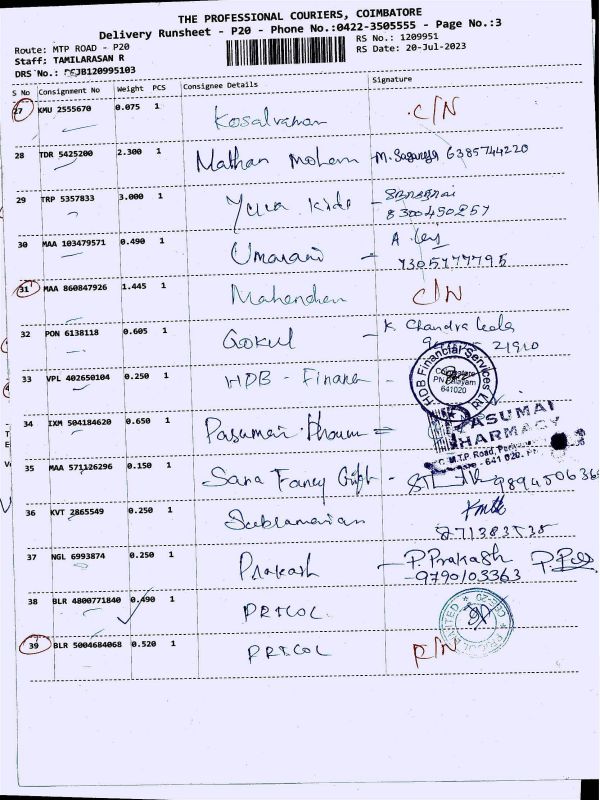 THE PROFESSIONAL COURIERS, COIMBATORE
Delivery Runsheet - P20 - Phone No.:0422-3505555 - Page No.:3
Route: MTP ROAD - P20
RS No.: 1209951
Staff: TAMILARASAN R
RS Date: 20-Jul-2023
DRS No.: 120995103
S No Consignment No Weight PCS Consignee Details Signature
27 KMU 2555670 0.075 1 Kosalraman C/N
28 TDR 5425200 2.300 1 Mathan Mohan 6385744220
29 TRP 5357833 3.000 1 Yuva Kids
8300450257
30 MAA 103479571 0.490 1 Umarani
7305777795
31 MAA 860847926 1.445 1 C/N
32 PON 6138118 0.605 1 Gokul K. Chandra
21910
33 VPL 402650104 0.250 1 HDB - Finance
HDB Financial Services
Coimbatore
641020
34 IXM 504184620 0.650 1 Pasumai
PASUMAI
PHARMACY
M.T.P. Road,
641 020.
35 MAA 571126296 0.150 1 Sara Fancy
36 KVT 2865549 0.250 1 Subramanian
37 NGL 6993874 0.250 1 Prakash P. Prakash
9790103363
38 BLR 4800771840 0.490 1 PRICOL
39 BLR 5004684068 0.520 1 PRICOL